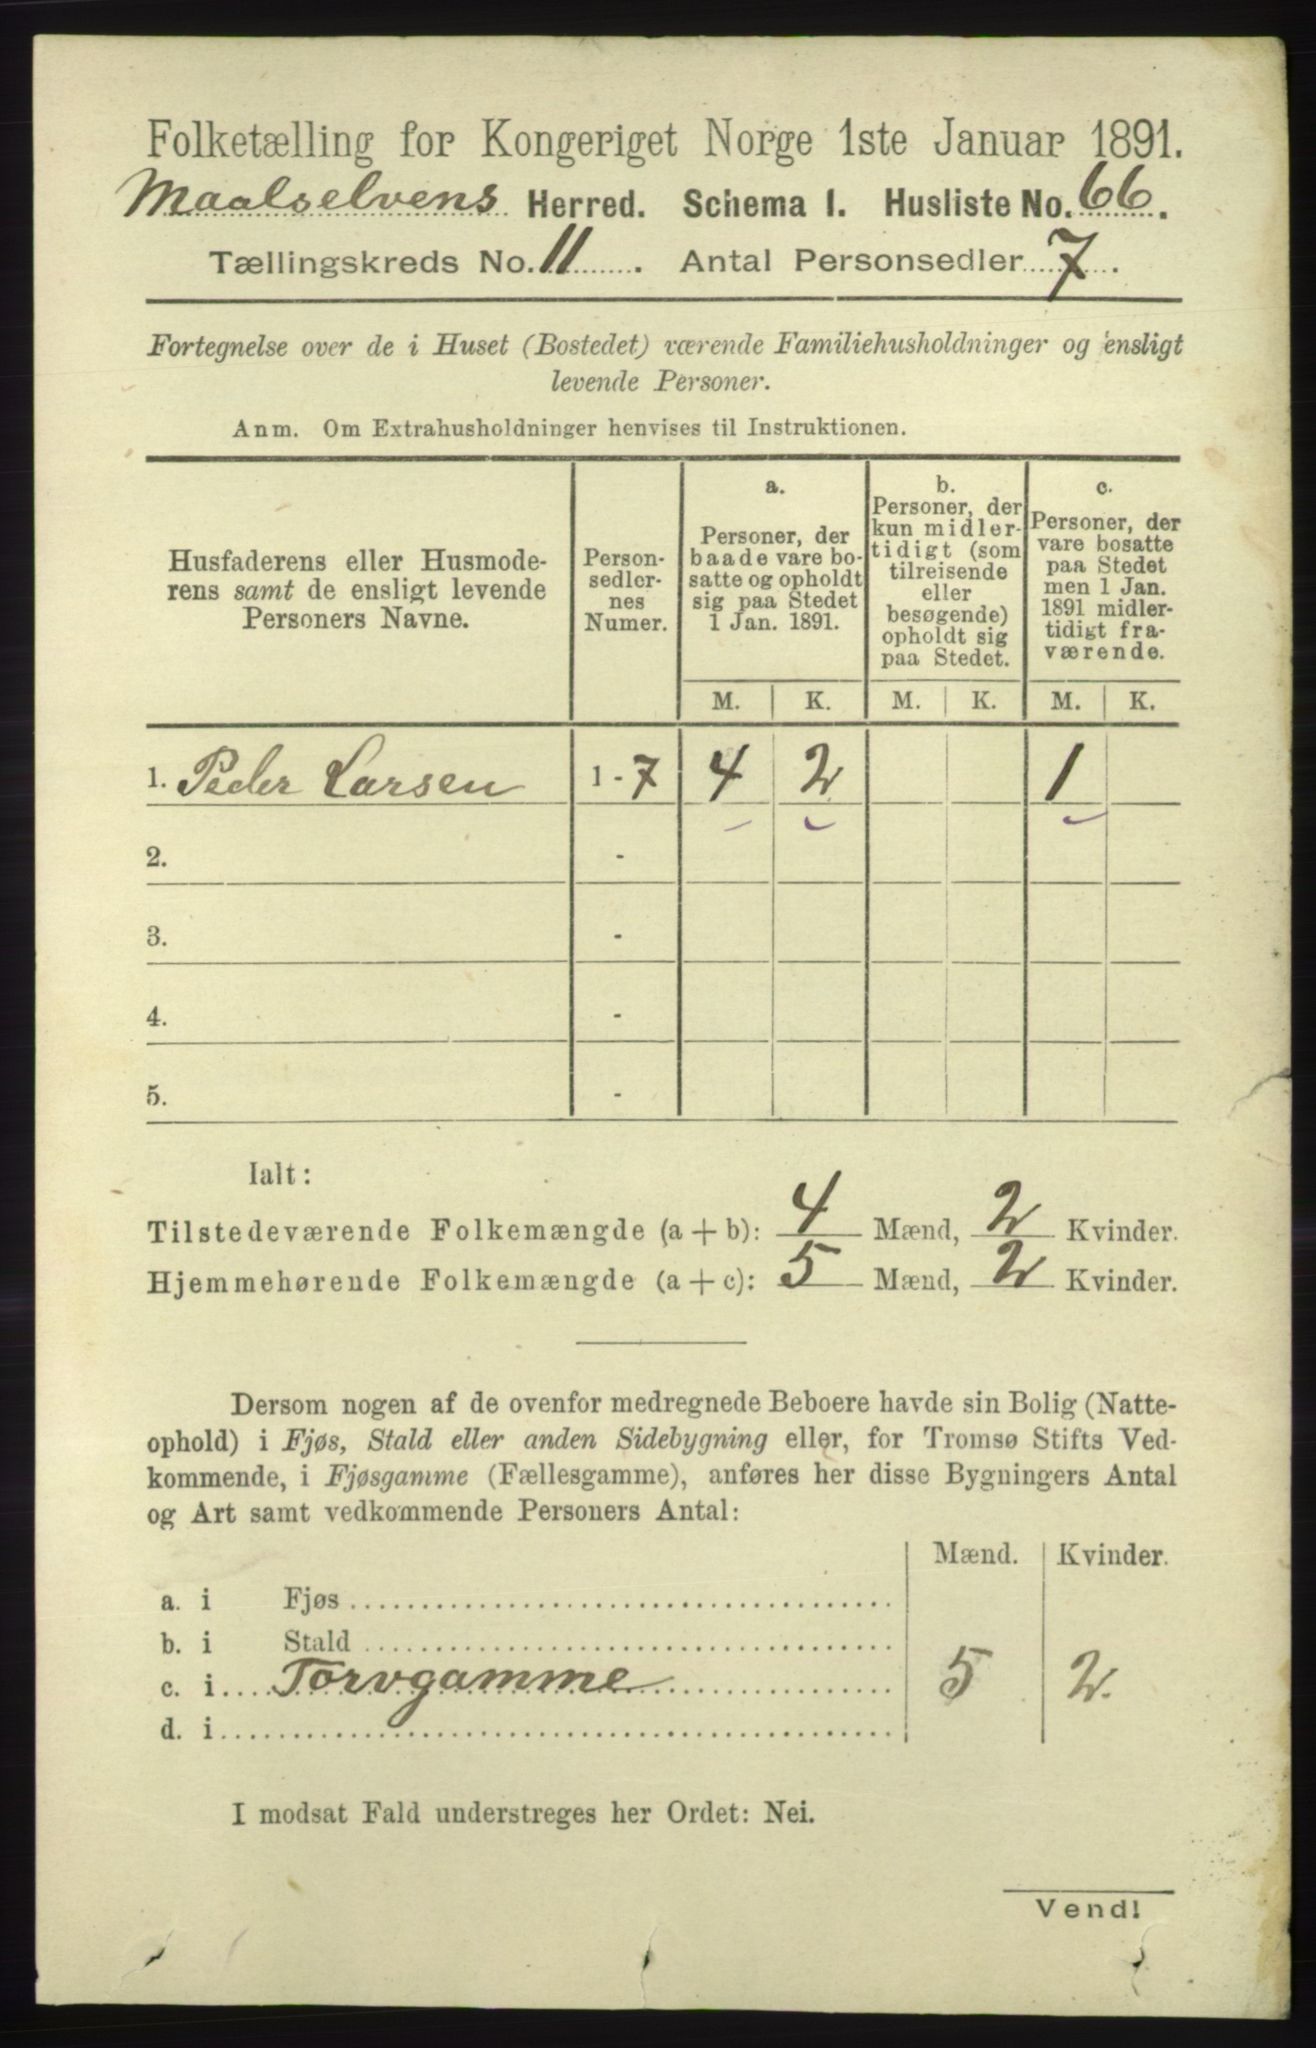 Folketælling for Kongeriget Norge 1ste Januar 1891.
Maalselvens Herred. Schema I. Husliste No. 66.
Tællingskreds No. 11. Antal Personsedler 7.
Fortegnelse over de i Huset (Bostedet) værende Familiehusholdninger og ensligt
levende Personer.
Anm. Om Extrahusholdninger henvises til Instruktionen.
Husfaderens eller Husmode-
rens samt de ensligt levende
Personers Navne.
Person-
sedler-
nes
Numer.
a.
Personer, der
baade vare bo-
satte og opholdt
sig paa Stedet
1 Jan. 1891.
b.
Personer, der
kun midler-
tidigt (som
tilreisende
eller
besøgende)
opholdt sig
paa Stedet.
c.
Personer, der
vare bosatte
paa Stedet
men 1 Jan.
1891 midler-
tidigt fra-
værende.
M. K. M. K. M. K.
1. Peder Larsen 1 - 7 4 2 1
2. -
3. -
4. -
5. -
Ialt:
Tilstedeværende Folkemængde (a + b): 4 Mænd, 2 Kvinder.
Hjemmehørende Folkemængde (a + c): 5 Mænd, 2 Kvinder.
Dersom nogen af de ovenfor medregnede Beboere havde sin Bolig (Natte-
ophold) i Fjøs, Stald eller anden Sidebygning eller, for Tromsø Stifts Ved-
kommende, i Fjøsgamme (Fællesgamme), anføres her disse Bygningers Antal
og Art samt vedkommende Personers Antal:
Mænd. Kvinder.
a. i Fjøs
b. i Stald
c. i Torvgamme 5 2.
d. i
I modsat Fald understreges her Ordet: Nei.
Vend!